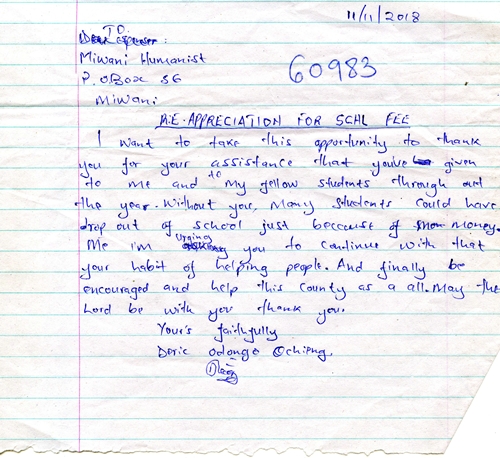 11/11/2018
TO
Dear sponser:
Miwani Humanist
P.O Box 36
Miwani
60983
RE-APPRECIATION FOR SCHL FEE
I want to take this opportunity to thank
you for your assistance that youve given
to me and to my fellow students through out
the year. Without you, Many students could have
drop out of school just beccause of mon money.
Me i'm Urging you to continue with that
your habit of helping people. And finally be
encouraged and help this County as a all. May the
Lord be with you thank you.
Your's faithfully
Deric Odongo Ochieng.